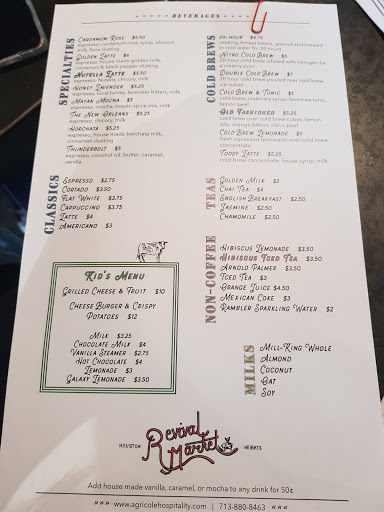 BEVERAGES
SPECIALTIES
CARDAMOM ROSE $5.50
espresso, cardamom rose syrup, almond
milk, rose dusting
GOLDEN LATTE $6
espresso, house made golden milk,
cinnamon & black pepper dusting
NUTELLA LATTE $5.50
espresso, Nutella, chicory, milk
HONEY LAVENDER $5.75
espresso, local honey, lavender bitters, milk
MAYAN MOCHA $5
espresso, mocha, mayan spice mix, milk
THE NEW ORLEANS $5.25
espresso, chicory, milk
HORCHATA $5.25
espresso, house made horchata milk,
cinnamon dusting
THUNDERBOLT $5
espresso, coconut oil, butter, caramel,
vanilla
COLD BREWS
20-HOUR $4.75
rotating Amaya beans, ground and brewed
in cold water for 20 hours
NITRO COLD BREW $5
20-hour cold brew infused with nitrogen for
a creamy pour
DOUBLE COLD BREW $7
20 hour cold brew poured over cold brew
ice cubes
COLD BREW & TONIC $5
cold brew, rosemary syrup, fevertree tonic,
lemon peel
OLD FASHIONED $5.25
cold brew over cold brew cubes, lemon
oils, orange bitters, citrus peel
COLD BREW LEMONADE $5
fresh squeezed lemonade over cold brew
concentrate
TODDY LATTE $5.25
cold brew concentrate, house syrup, milk
CLASSICS
ESPRESSO $2.75
CORTADO $3.50
FLAT WHITE $3.75
CAPPUCCINO $3.75
LATTE $4
AMERICANO $3
TEAS
GOLDEN MILK $5
CHAI TEA $4
ENGLISH BREAKFAST $2.50
JASMINE $2.50
CHAMOMILE $2.50
KID'S MENU
GRILLED CHEESE & FRUIT $10
CHEESE BURGER & CRISPY
POTATOES $12
MILK $3.25
CHOCOLATE MILK $4
VANILLA STEAMER $2.75
HOT CHOCOLATE $4
LEMONADE $3
GALAXY LEMONADE $3.50
NON-COFFEE
HIBISCUS LEMONADE $3.50
HIBISCUS ICED TEA $3
ARNOLD PALMER $3.50
ICED TEA $3
ORANGE JUICE $4.50
MEXICAN COKE $3
RAMBLER SPARKLING WATER $2
MILKS
MILL-KING WHOLE
ALMOND
COCONUT
OAT
SOY
HOUSTON Revival Market HEIGHTS
Add house made vanilla, caramel, or mocha to any drink for 50¢
www.agricolehospitality.com | 713-880-8463